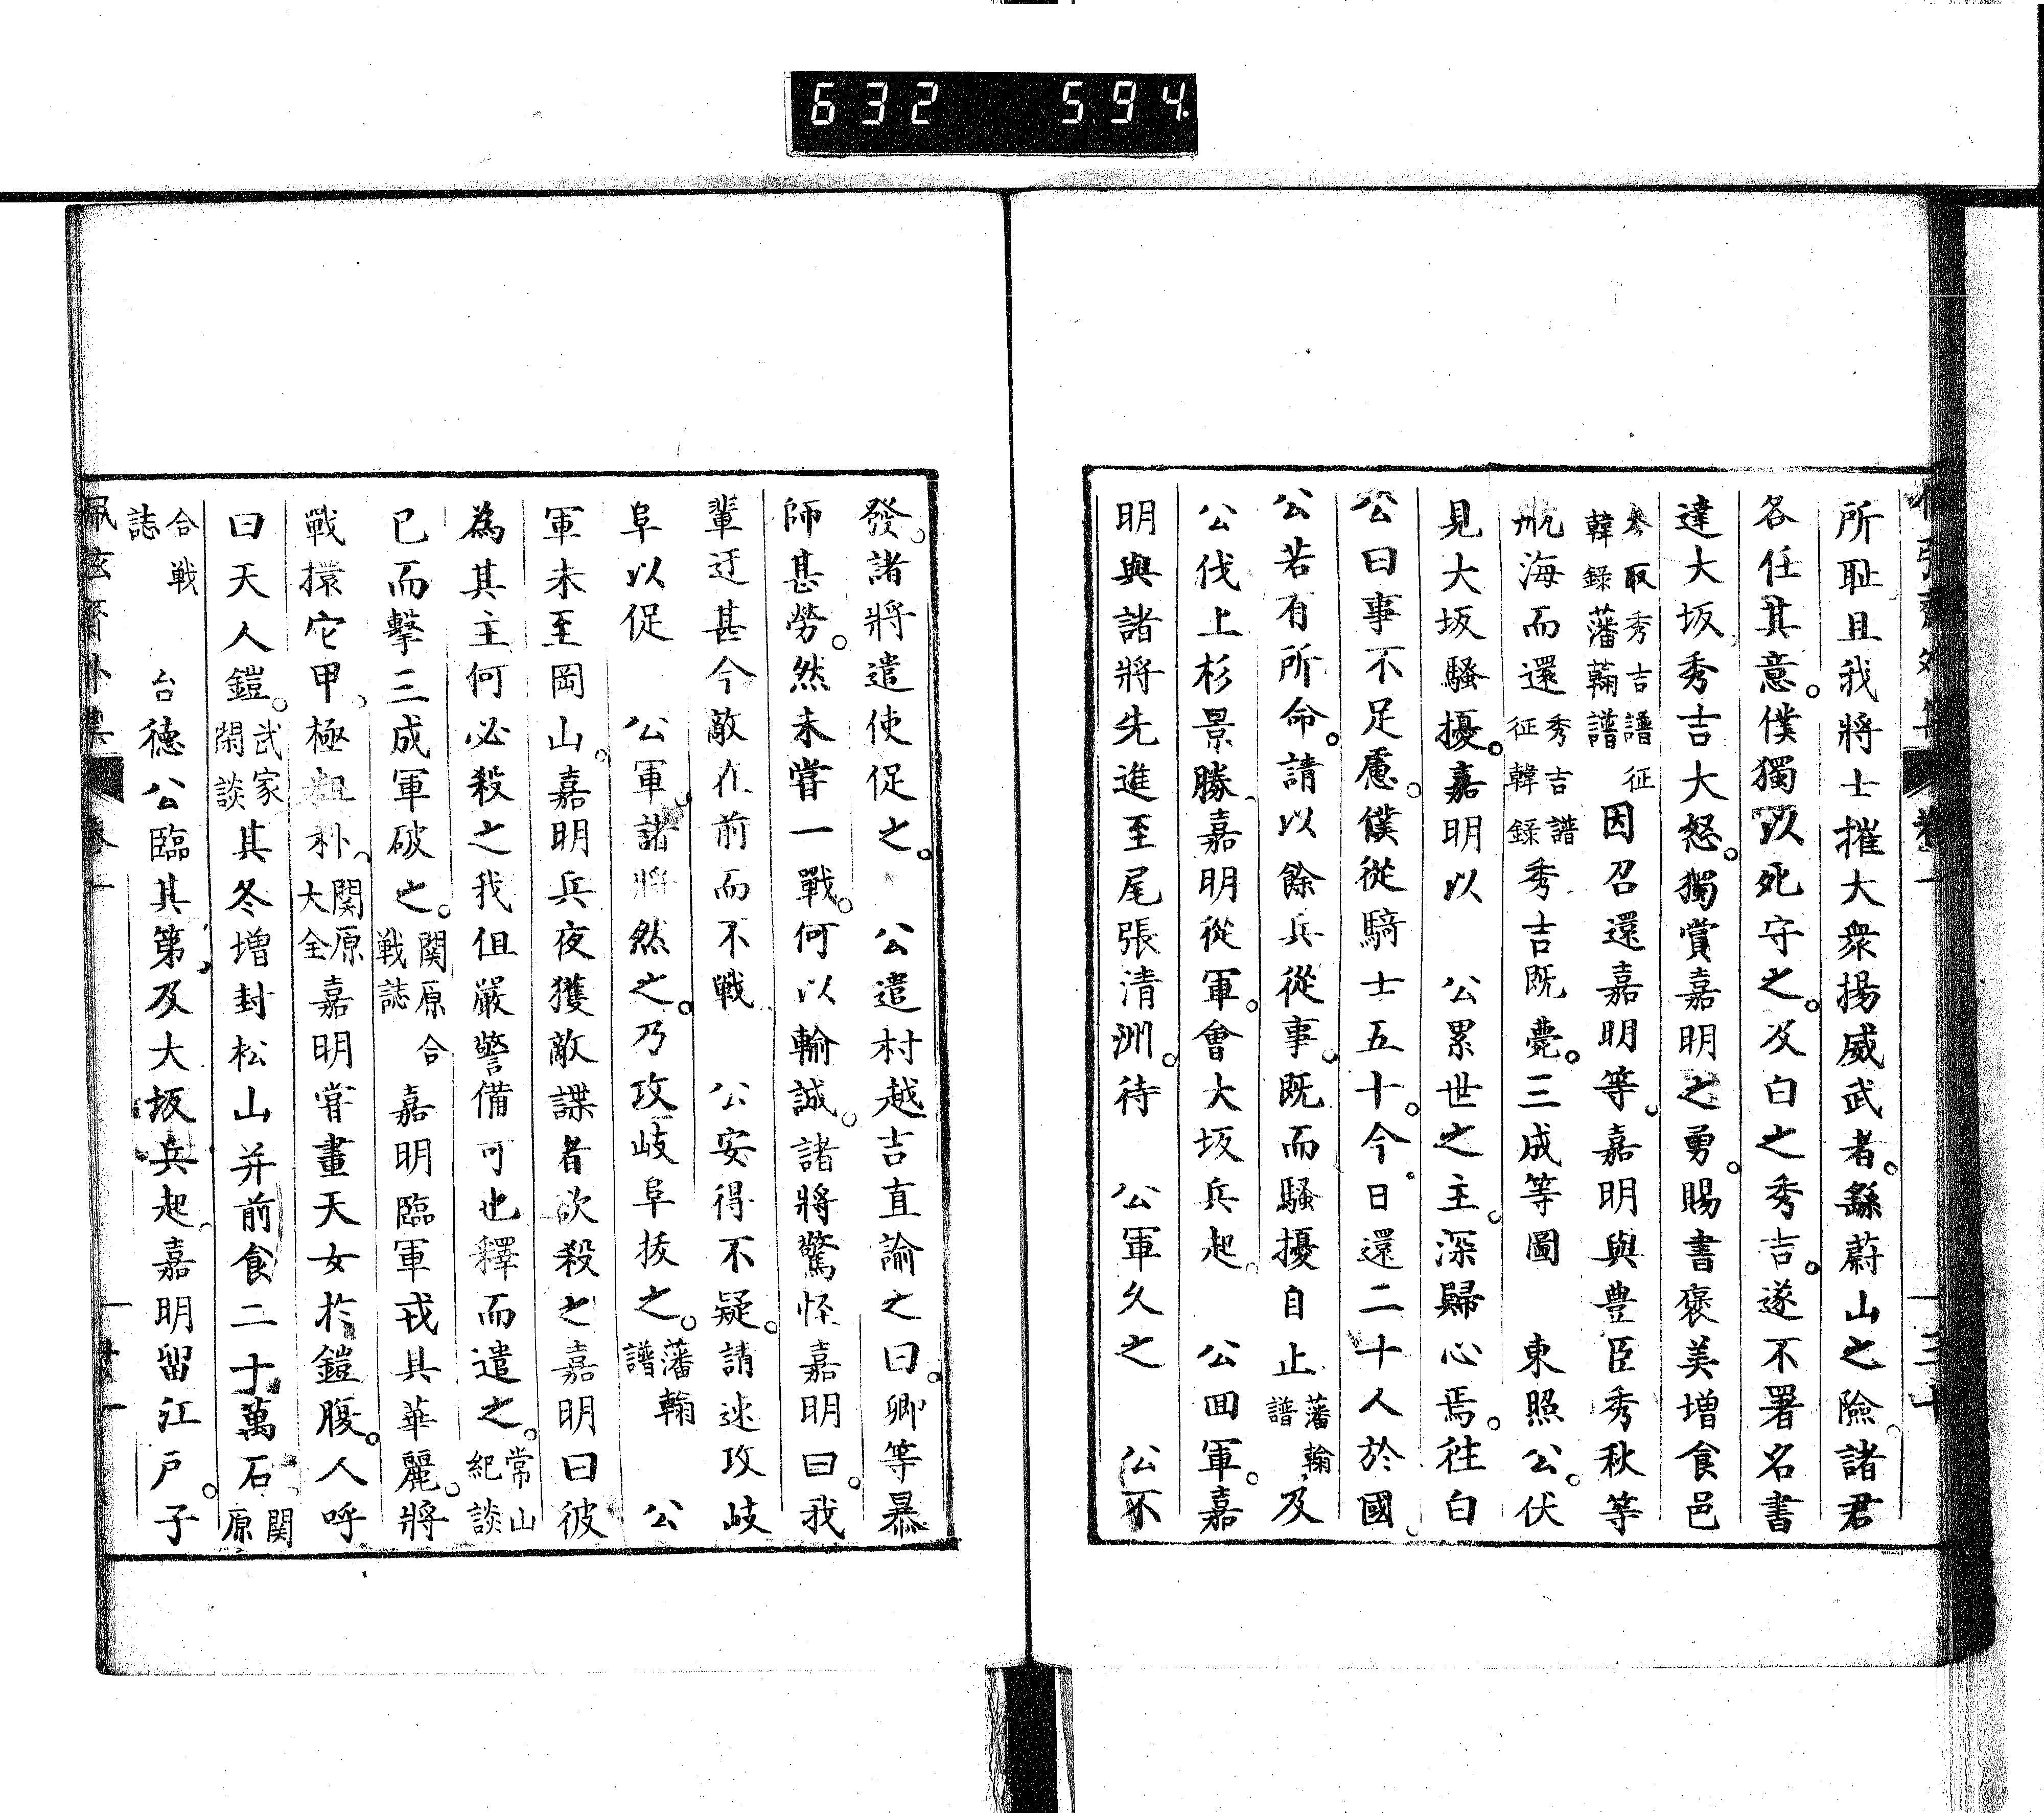 632 594
所耻且我將士摧大衆揚威武者。繇蔚山之險。諸君
各任其意。僕獨以死守之。及白之秀吉。遂不署名書
達大坂。秀吉大怒。獨賞嘉明之勇。賜書褒美增食邑
參取秀吉譜征韓錄藩翰譜因召還嘉明等。嘉明與豊臣秀秋等
帆海而還秀吉譜征韓錄秀吉既薨。三成等圖　東照公。伏
見大坂騷擾。嘉明以　公累世之主。深歸心焉。往白
公曰事不足慮。僕從騎士五十。今日還二十人於國。
公若有所命。請以餘兵從事。既而騷擾自止藩翰譜及
公伐上杉景勝。嘉明從軍。會大坂兵起。　公回軍。嘉
明與諸將先進至尾張清洲。待　公軍久之　公不
發。諸將遣使促之。　公遣村越吉直諭之曰。卿等暴
師甚勞。然未嘗一戰。何以輸誠。諸將驚怪嘉明曰。我
輩迂甚今敵在前而不戰　公安得不疑。請速攻岐
阜以促　公軍。諸將然之。乃攻岐阜拔之。藩翰譜　公
軍未至岡山。嘉明兵夜獲敵諜者欲殺之嘉明曰彼
為其主何必殺之我但嚴警備可也釋而遣之。常山紀談
已而擊三成軍破之。関原合戦誌　嘉明臨軍戎具華麗。將
戰擐它甲。極粗朴。関原大全嘉明嘗畫天女於鎧腹。人呼
曰天人鎧。武家閑談其冬增封松山并前食二十萬石関原
合戦誌　台德公臨其第。及大坂兵起。嘉明留江戸。子